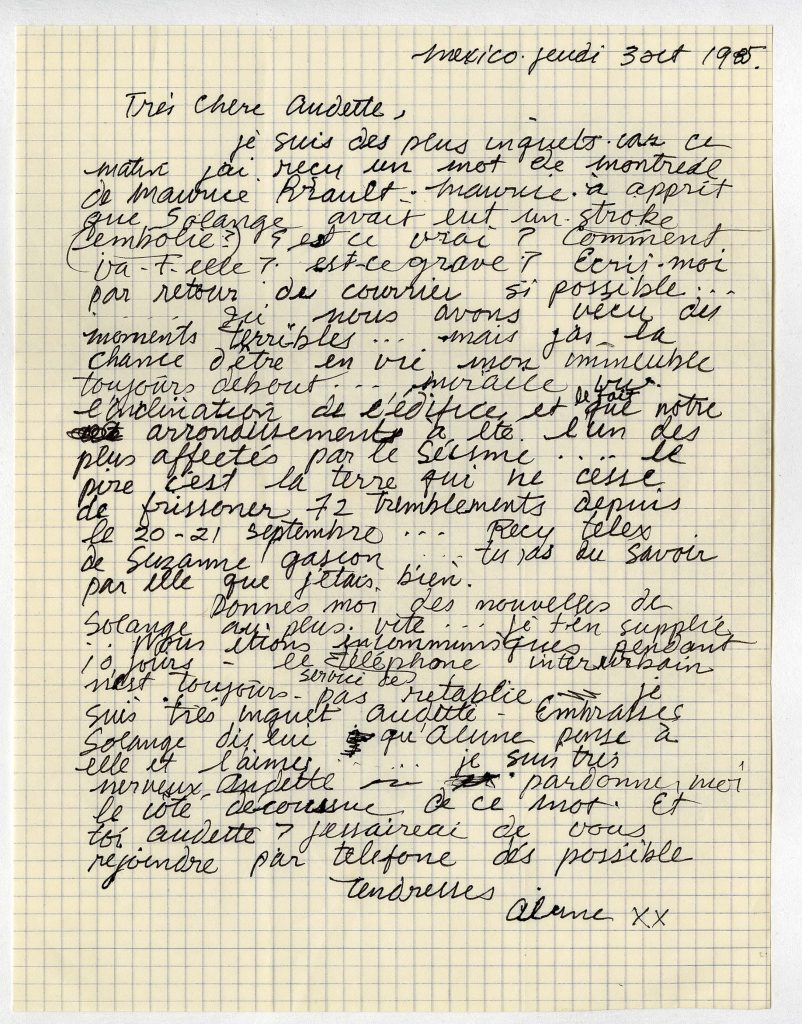 Mexico. jeudi 3 oct 1985.
Très Chere Audette,
je suis des plus inquets. car ce
matin j'ai reçu un mot de montreal
de Maurice . Maurice. à apprit
que Solange avait eut un stroke
(embolie?) ? est ce vrai ? Comment
va-T-elle ? est-ce grave ? Ecris-moi
par retour de courrier si possible...
... ici nous avons vécu des
moments terribles ... mais jai la
chance d'être en vie mon immeuble
toujours debout ... miracle vu
l'inclination de l'édifice, et le fait que notre
arrondissement à été l'un des
plus affectés par le Séisme .... le
pire c'est la terre qui ne cesse
de frissoner 72 Tremblements depuis
le 20-21 septembre ... Reçu télex
de Suzanne gascon ... tu as du savoir
par elle que j'etais bien.
Donnes moi des nouvelles de
Solange au plus vite ... je t'en supplie
.. Nous étions incommuniqués pendant
10 jours - le téléphone interurbain
n'est toujours service de pas retablie je
suis très inquet Audette - Embrasses
Solange dis lui qu'Alune pense à
elle et l'aimes ..... je suis très
nerveux Audette ... pardonne moi
le côté decoussue de ce mot. Et
toi Audette ? j'essaireai de vous
rejoindre par telefone dés possible
Tendresses
XX